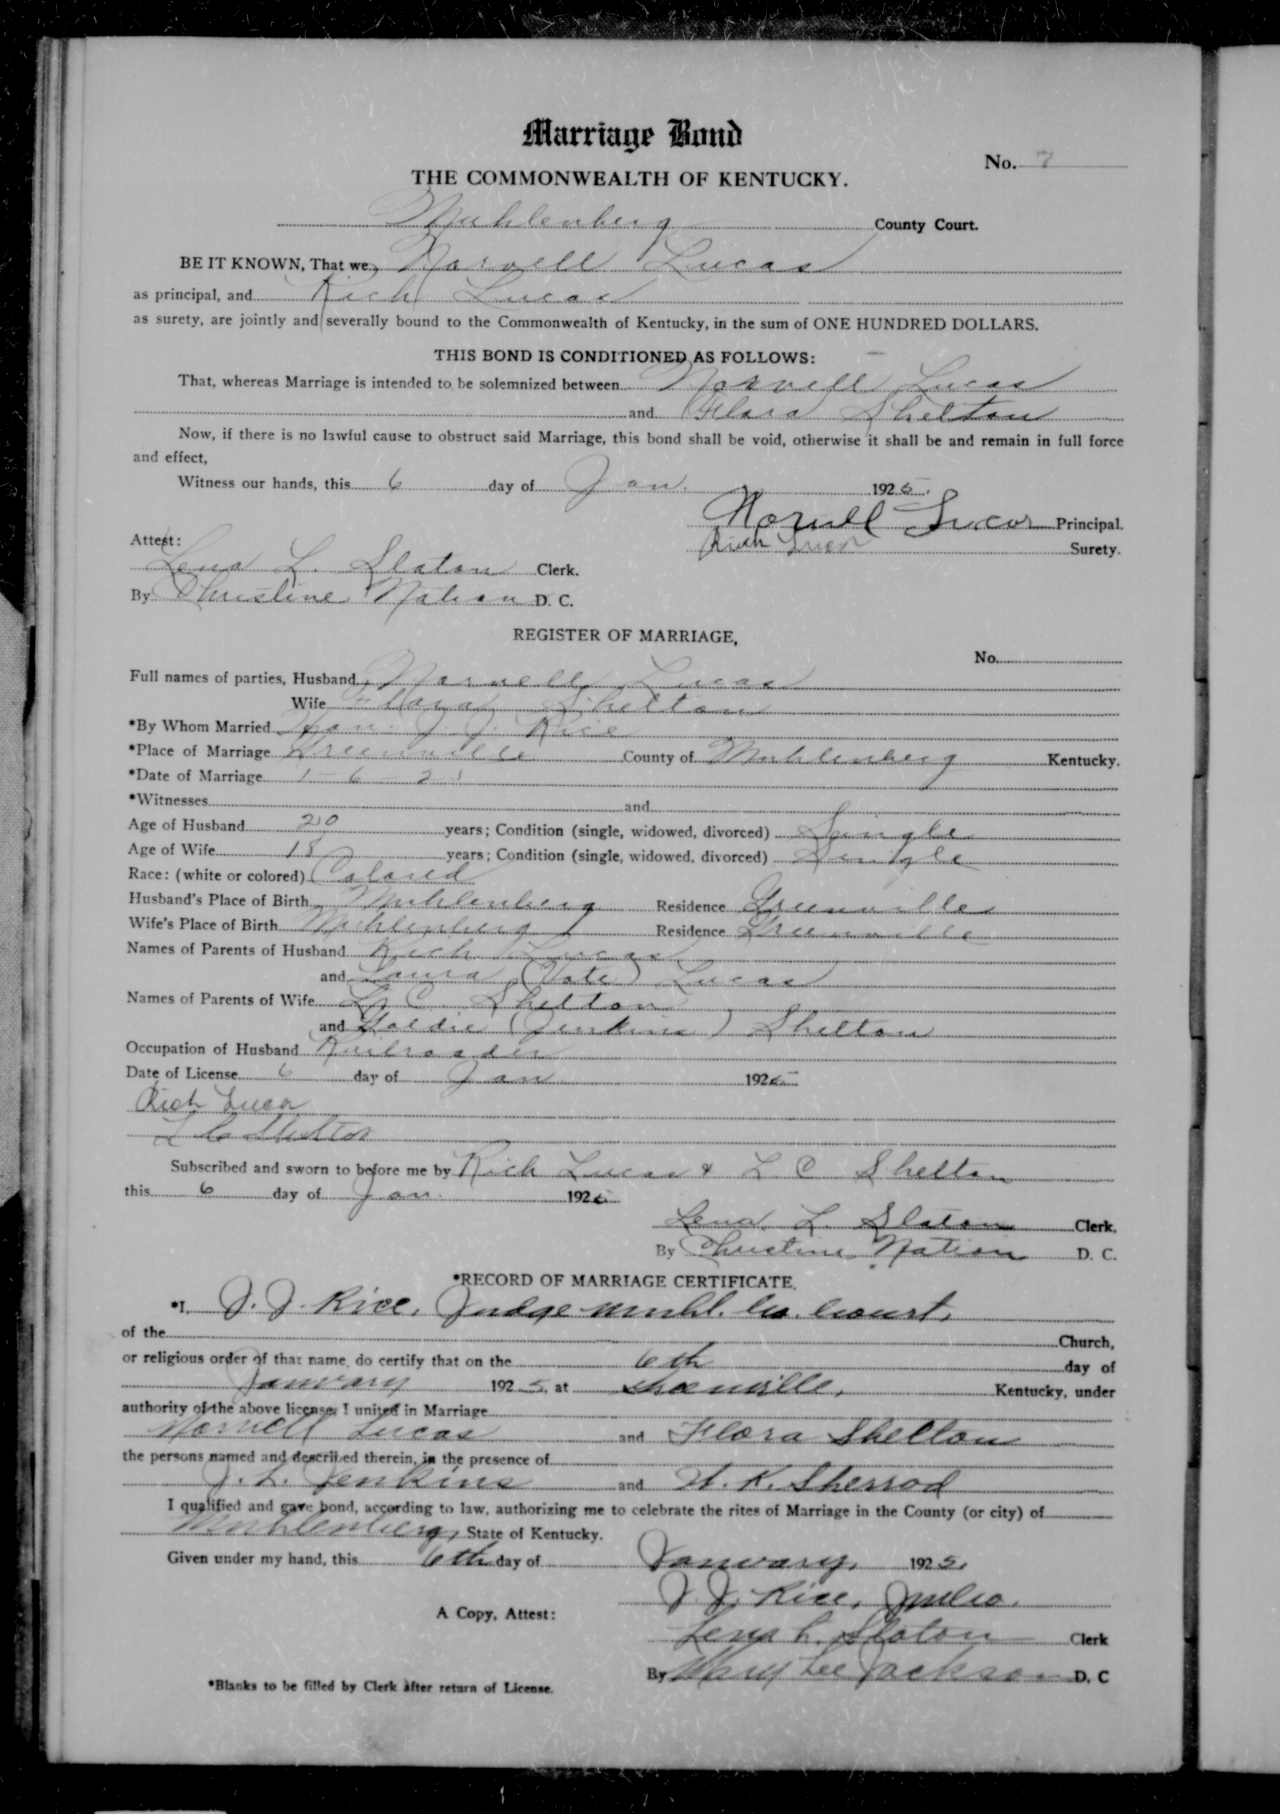 Marriage Bond
No. 7
THE COMMONWEALTH OF KENTUCKY.
Muhlenberg County Court.
BE IT KNOWN, That we, Norvell Lucas
as principal, and Rich Lucas
as surety, are jointly and severally bound to the Commonwealth of Kentucky, in the sum of ONE HUNDRED DOLLARS.
THIS BOND IS CONDITIONED AS FOLLOWS:
That, whereas Marriage is intended to be solemnized between Norvell Lucas
and Flora Shelton
Now, if there is no lawful cause to obstruct said Marriage, this bond shall be void, otherwise it shall be and remain in full force
and effect,
Witness our hands, this 6 day of Jan. 1925.
Norvell Lucas Principal.
Attest: Rich Lucas Surety.
Lena L. Slaton Clerk.
By Christine Nation D. C.
REGISTER OF MARRIAGE,
No.
Full names of parties, Husband Norvell Lucas
Wife Flora Shelton
*By Whom Married Hon. J. J. Rice
*Place of Marriage Greenville County of Muhlenberg Kentucky.
*Date of Marriage 1-6-25
*Witnesses and
Age of Husband 20 years; Condition (single, widowed, divorced) Single
Age of Wife 18 years; Condition (single, widowed, divorced) Single
Race: (white or colored) Colored
Husband's Place of Birth Muhlenberg Residence Greenville
Wife's Place of Birth Muhlenberg Residence Greenville
Names of Parents of Husband Rich Lucas
and Laura (Vote) Lucas
Names of Parents of Wife L. C. Shelton
and Goldie (Jenkins) Shelton
Occupation of Husband Railroader
Date of License 6 day of Jan 1925
Rich Lucas
L C Shelton
Subscribed and sworn to before me by Rich Lucas & L. C Shelton
this 6 day of Jan. 1925
Lena L. Slaton Clerk.
By Christine Nation D. C.
*RECORD OF MARRIAGE CERTIFICATE.
*I, J. J. Rice, Judge Muhl. Co. Court,
of the Church,
or religious order of that name, do certify that on the 6th day of
January 1925, at Greenville, Kentucky, under
authority of the above license, I united in Marriage
Norvell Lucas and Flora Shelton
the persons named and described therein, in the presence of
J. L. Jenkins and H. K. Sherrod
I qualified and gave bond, according to law, authorizing me to celebrate the rites of Marriage in the County (or city) of
Muhlenberg, State of Kentucky.
Given under my hand, this 6th day of January, 1925.
J. J. Rice,
A Copy, Attest:
Lena L. Slaton Clerk
By Mary Lee Jackson D. C
*Blanks to be filled by Clerk after return of License.